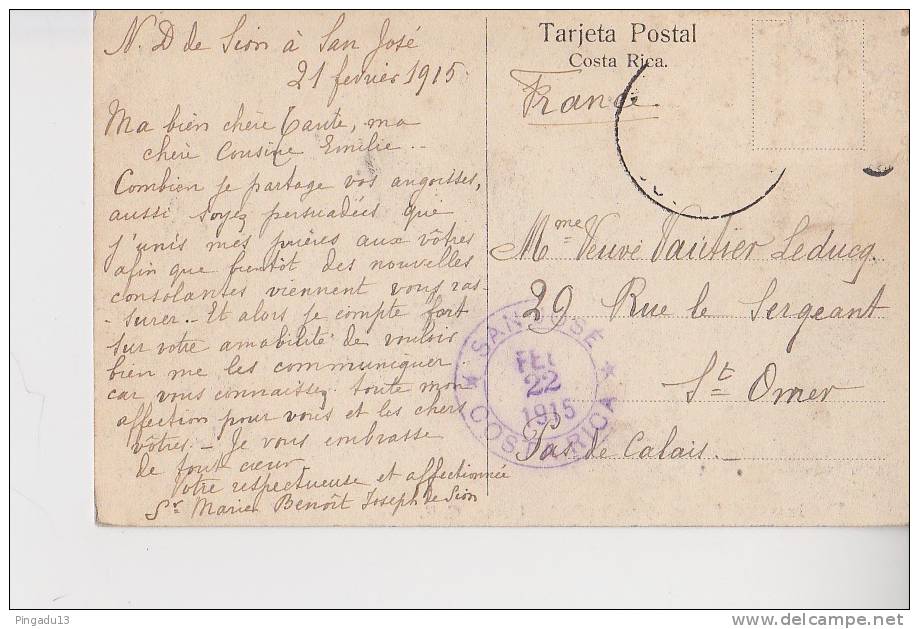 N. D de Sion à San José
21 fevrier 1915
Ma bien chère Tante, ma
chère Cousine Emilie..
Combien je partage vos angoisses,
aussi soyez persuadées que
j'unis mes prières aux vôtres
afin que bientôt des nouvelles
consolantes viennent vous ras-
-surer.- Et alors je compte fort
sur votre amabilité de vouloir
bien me les communiquer
car vous connaissez toute mon
affection pour vous et les chers
vôtres.- Je vous embrasse
de tout cœur
Votre respectueuse et affectionnée
Sr Marie Benoît Joseph de Sion
Tarjeta Postal
Costa Rica.
France
Mme Veuve Vautier Leducq.
29 Rue le Sergeant
St Omer
Pas de Calais.
SAN JOSÉ
FEB
22
1915
COSTA RICA
Pingadu13
http://www.delcampe.net